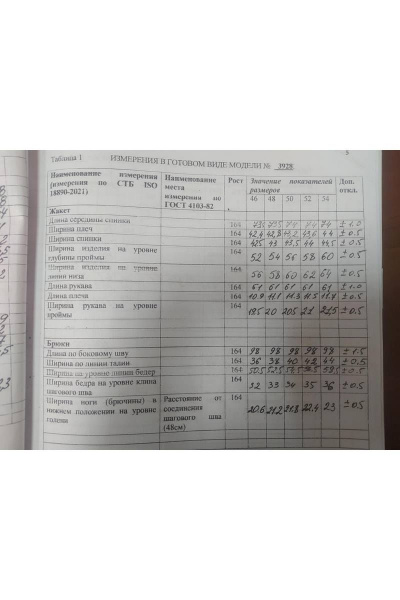 Таблица 1 ИЗМЕРЕНИЯ В ГОТОВОМ ВИДЕ МОДЕЛИ № 3928
Наименование измерения (измерения по СТБ ISO 18890-2021) Наименование места измерения по ГОСТ 4103-82 Рост Значение показателей размеров Доп. откл.
46 48 50 52 54
Жакет
Длина середины спинки 164 74 74 ± 1.0
Ширина плеч 164 42.4 42.8 43.2 43.6 44 ± 0.5
Ширина спинки 164 42.5 43 43.5 44 44.5 ± 0.5
Ширина изделия на уровне глубины проймы 164 52 54 56 58 60 ± 0.5
Ширина изделия на уровне линии низа 164 56 58 60 62 64 ± 0.5
Длина рукава 164 61 61 61 61 61 ± 1.0
Длина плеча 164 10.9 11.1 11.3 11.5 11.7 ± 0.5
Ширина рукава на уровне проймы 164 19.5 20 20.5 21 21.5 ± 0.5
Брюки
Длина по боковому шву 164 98 98 98 98 98 ± 1.5
Ширина по линии талии 164 36 38 40 42 44 ± 0.5
Ширина на уровне линии бедер 164 ± 0.5
Ширина бедра на уровне клина шагового шва 164 32 33 34 35 36 ± 0.5
Ширина ноги (брючины) в нижнем положении на уровне Расстояние от соединения шагового шва (48см) 164 20.6 21.2 21.8 22.4 23 ± 0.5